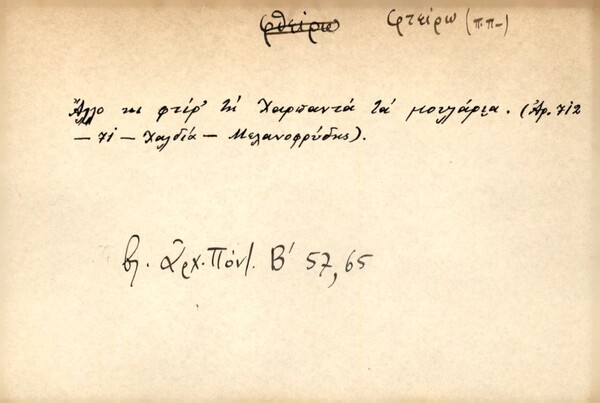 φθείρω φτείρω (π.π-)
Ἄλλο κι φτείρ' τἠ Χαρπαντά τά μουλάρια. (Ἀρ. 712
— 71 — Χαλδία — Μελανοφρύδης).
βλ. Ἀρχ. Πόντ. Β' 57, 65